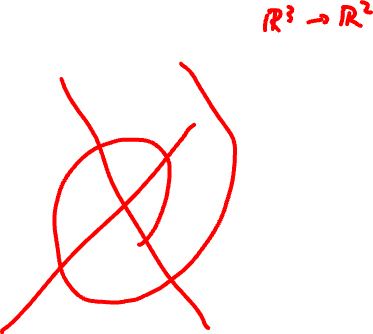 ℝ³ → ℝ²